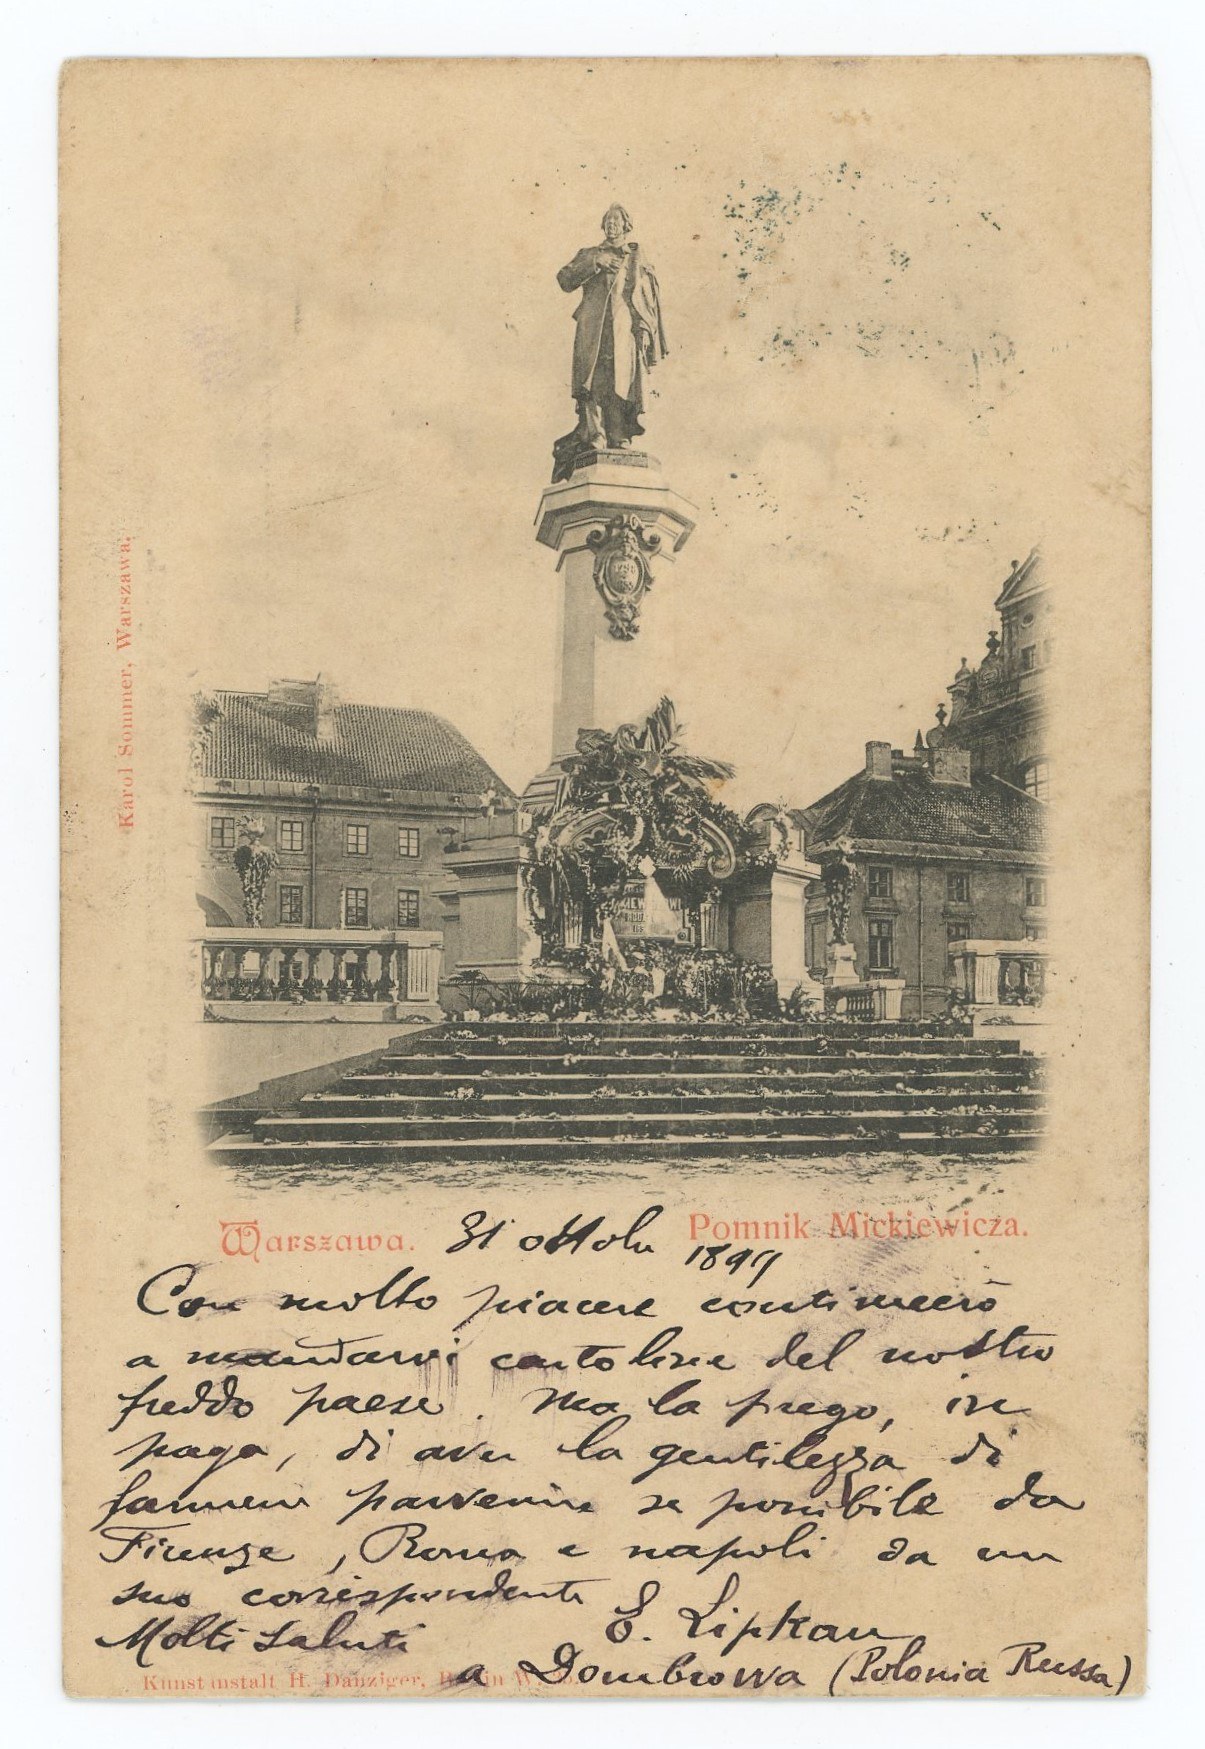 Karol Sommer, Warszawa.
1798
Warszawa. Pomnik Mickiewicza.
31 ottobr 1899
Con molto piacere continuerò
a mandarvi cartoline del nostro
freddo paese. Ma la prego, in
paga, di aver la gentilezza di
farmene parvenire se possibile da
Firenze, Roma e Napoli da un
suo corrispondente
Molti saluti E. Lipkau
a Dombrowa (Polonia Russa)
Kunstanstalt H. Danziger, Berlin W.